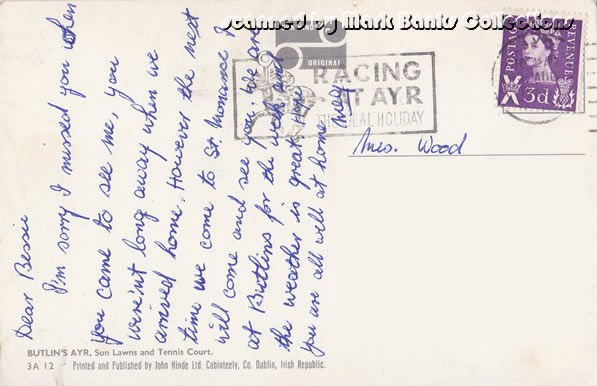 scanned by Mark Banks Collections.
ORIGINAL
RACING
AT AYR
THE IDEAL HOLIDAY
POSTAGE
REVENUE
3d
Mrs. Wood
Dear Bessie
I'm sorry I missed you when
you came to see me, you
were'nt long away when we
arrived home. However the next
time we come to St. Monance I
will come and see you, we are
at Butlins for the week and
the weather is great. Hope
you are all well at home
BUTLIN'S AYR, Sun Lawns and Tennis Court.
3A 12 Printed and Published by John Hinde Ltd. Cabinteely, Co. Dublin, Irish Republic.